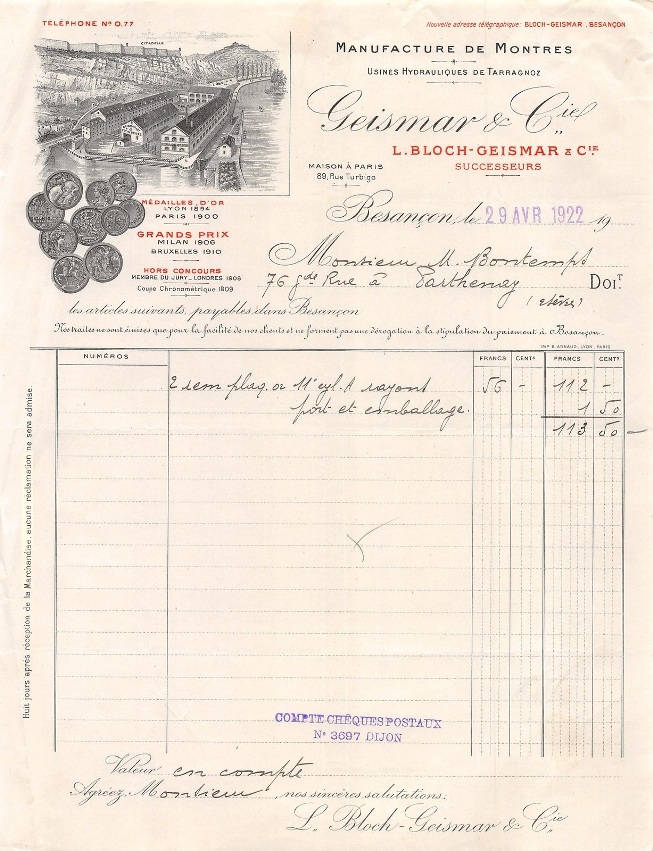 TÉLÉPHONE Nº 0.77
Nouvelle adresse télégraphique: BLOCH-GEISMAR, BESANÇON
CITADELLE
MANUFACTURE DE MONTRES
USINES HYDRAULIQUES DE TARRAGNOZ
Geismar & Cie
L. BLOCH-GEISMAR & CIE
SUCCESSEURS
MAISON À PARIS
89, Rue Turbigo
MÉDAILLES D'OR
LYON 1894
PARIS 1900
GRANDS PRIX
MILAN 1906
BRUXELLES 1910
HORS CONCOURS
MEMBRE DU JURY_LONDRES 1908
Coupe Chronométrique 1909
Besançon, le 29 AVR 1922 19
Monsieur M. Bontemps
76 gde Rue à Parthenay DOIT
les articles suivants, payables dans Besançon
Nos traites ne sont émises que pour la facilité de nos clients et ne forment pas une dérogation à la stipulation du paiement à Besançon.
IMP B. ARNAUD, LYON PARIS
NUMÉROS FRANCS CENTS FRANCS CENTS
2 rem plaq. or 11e cyl. 56 - 112 -
port et emballage. 1 50
113 50 -
Huit jours après réception de la Marchandise, aucune réclamation ne sera admise.
COMPTE CHÈQUES POSTAUX
Nº 3697 DIJON
Valeur en compte
Agréez, Monsieur, nos sincères salutations:
L. Bloch-Geismar & Cie